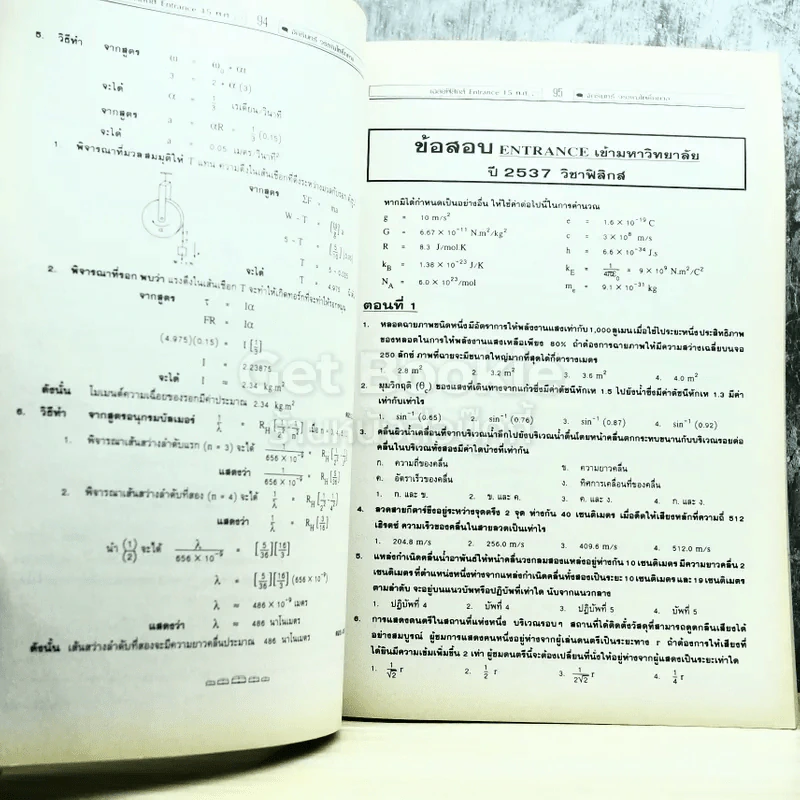 Entrance 15 พ.ศ. 94
5. วิธีทำ จากสูตร ω = ω₀ + αt
3 = 2 + α (3)
จะได้ α = 1/3 เรเดียน/วินาที²
จากสูตร a = αR = 1/3 (0.15)
จะได้ a = 0.05 เมตร/วินาที²
1. พิจารณาที่มวล สมมุติให้ T แทน ความตึงในเส้นเชือกที่ดึงระหว่าง
จากสูตร ΣF = ma
W - T =
5 - T =
T = 5 - 0.025
จะได้ T = 4.975
2. พิจารณาที่รอก พบว่า แรงตึงในเส้นเชือก T จะทำให้เกิดทอร์กที่จะทำให้รอกหมุน
จากสูตร τ = Iα
FR = Iα
(4.975)(0.15) = I[1/3]
I = 2.23875
จะได้ I ≈ 2.34 kg m²
ดังนั้น โมเมนต์ความเฉื่อยของรอกมีค่าประมาณ 2.34 kg m²
6. วิธีทำ จากสูตรอนุกรมบัลเมอร์ 1/λ = R_H[1/2² - 1/n²]
1. พิจารณาเส้นสว่างลำดับแรก (n = 3) จะได้ 1/(656 × 10⁻⁹) = R_H[1/2² - 1/3²]
แสดงว่า 1/(656 × 10⁻⁹) = R_H[5/36]
2. พิจารณาเส้นสว่างลำดับที่สอง (n = 4) จะได้ 1/λ = R_H[1/2² - 1/4²]
แสดงว่า 1/λ = R_H[3/16]
นำ (1/2) จะได้ λ/(656 × 10⁻⁹) = [5/36][16/3]
λ = [5/36][16/3] (656 × 10⁻⁹)
λ ≈ 486 × 10⁻⁹ เมตร
แสดงว่า λ ≈ 486 นาโนเมตร
ดังนั้น เส้นสว่างลำดับที่สองจะมีความยาวคลื่นประมาณ 486 นาโนเมตร
Entrance 15 พ.ศ. 95
ข้อสอบ ENTRANCE เข้ามหาวิทยาลัย
ปี 2537 วิชาฟิสิกส์
หากมิได้กำหนดเป็นอย่างอื่น ให้ใช้ค่าต่อไปนี้ในการคำนวณ
g = 10 m/s² e = 1.6 × 10⁻¹⁹ C
G = 6.67 × 10⁻¹¹ N.m²/kg² c = 3 × 10⁸ m/s
R = 8.3 J/mol.K h = 6.6 × 10⁻³⁴ J.s
k_B = 1.38 × 10⁻²³ J/K k_E = 1/(4πε₀) = 9 × 10⁹ N.m²/C²
N_A = 6.0 × 10²³/mol m_e = 9.1 × 10⁻³¹ kg
ตอนที่ 1
1. หลอดฉายภาพชนิดหนึ่งมีอัตราการให้พลังงานแสงเท่ากับ 1,000 ลูเมน เมื่อใช้ไประยะหนึ่งประสิทธิภาพ
ของหลอดในการให้พลังงานแสงเหลือเพียง 80% ถ้าต้องการฉายภาพให้มีความสว่างเฉลี่ยบนจอ
250 ลักซ์ ภาพที่ฉายจะมีขนาดใหญ่มากที่สุดได้กี่ตารางเมตร
1. 2.8 m² 2. 3.2 m² 3. 3.6 m² 4. 4.0 m²
2. มุมวิกฤติ (θ_c) ของแสงที่เดินทางจากแก้วซึ่งมีค่าดัชนีหักเห 1.5 ไปยังน้ำซึ่งมีค่าดัชนีหักเห 1.3 มีค่า
เท่ากับเท่าไร
1. sin⁻¹ (0.65) 2. sin⁻¹ (0.76) 3. sin⁻¹ (0.87) 4. sin⁻¹ (0.92)
3. คลื่นผิวน้ำเคลื่อนที่จากบริเวณน้ำลึกไปยังบริเวณน้ำตื้นโดยหน้าคลื่นตกกระทบขนานกับบริเวณรอยต่อ
คลื่นในบริเวณทั้งสองมีค่าใดบ้างที่เท่ากัน
ก. ความถี่ของคลื่น ข. ความยาวคลื่น
ค. อัตราเร็วของคลื่น ง. ทิศการเคลื่อนที่ของคลื่น
1. ก. และ ข. 2. ข. และ ค. 3. ค. และ ง. 4. ก. และ ง.
4. ลวดสายกีตาร์ขึงอยู่ระหว่างจุดตรึง 2 จุด ห่างกัน 40 เซนติเมตร เมื่อดีดให้เสียงหลักที่ความถี่ 512
เฮิรตซ์ ความเร็วของคลื่นในสายลวดเป็นเท่าไร
1. 204.8 m/s 2. 256.0 m/s 3. 409.6 m/s 4. 512.0 m/s
5. แหล่งกำเนิดคลื่นน้ำอาพันธ์ให้หน้าคลื่นวงกลมสองแหล่งอยู่ห่างกัน 10 เซนติเมตร มีความยาวคลื่น 2
เซนติเมตร ที่ตำแหน่งหนึ่งห่างจากแหล่งกำเนิดคลื่นทั้งสองเป็นระยะ 10 เซนติเมตร และ 19 เซนติเมตร
ตามลำดับ จะอยู่บนแนวบัพหรือปฏิบัพที่เท่าใด นับจากแนวกลาง
1. ปฏิบัพที่ 4 2. บัพที่ 4 3. ปฏิบัพที่ 5 4. บัพที่ 5
6. การแสดงดนตรีในสถานที่แห่งหนึ่ง บริเวณรอบๆ สถานที่ได้ติดตั้งวัสดุที่สามารถดูดกลืนเสียงได้
อย่างสมบูรณ์ ผู้ชมการแสดงคนหนึ่งอยู่ห่างจากผู้เล่นดนตรีเป็นระยะทาง r ถ้าต้องการให้เสียงที่
ได้ยินมีความเข้มเพิ่มขึ้น 2 เท่า ผู้ชมดนตรีนี้จะต้องเปลี่ยนที่นั่งให้อยู่ห่างจากผู้แสดงเป็นระยะเท่าใด
1. 1/√2 r 2. 1/2 r 3. 1/(2√2) r 4. 1/4 r
Get Bookie